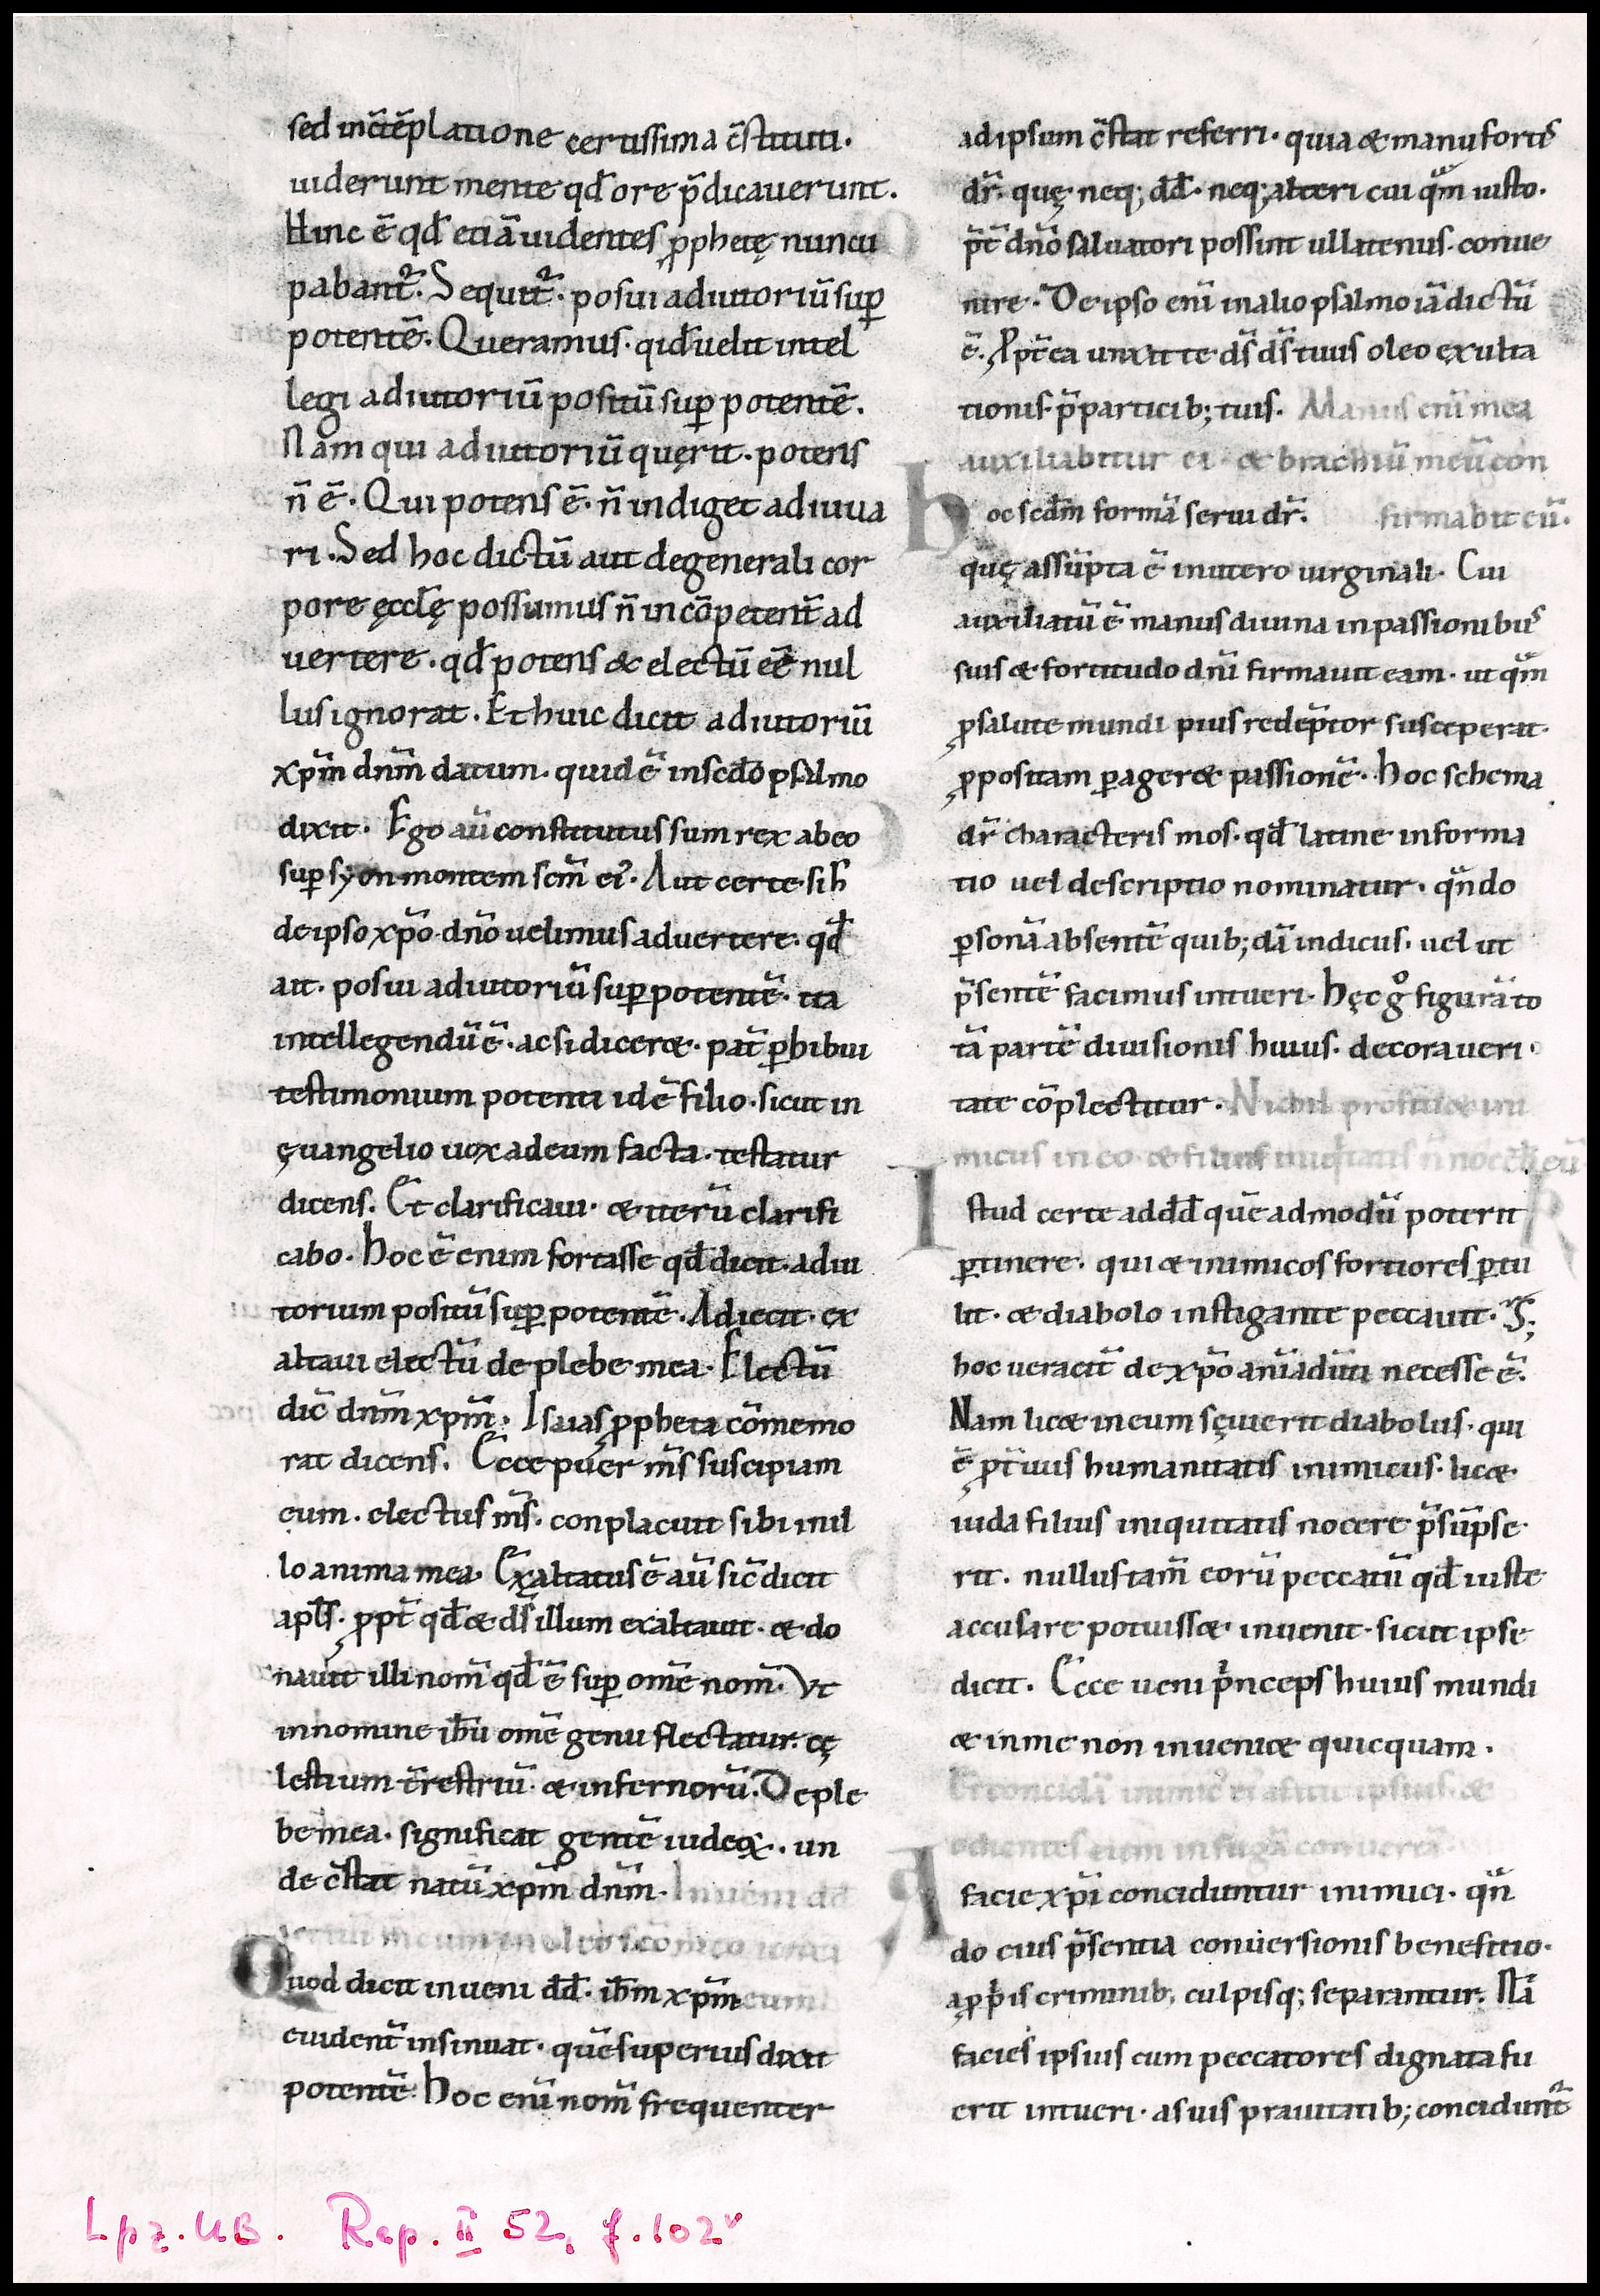 sed inc̄tēplatione certissima c̄stituti.
uiderunt mente qđ ore p̄dicauerunt.
Hinc ē qđ etiā uidentes ꝓphetę nuncu
pabant᷑. Sequit᷑. posui adiutoriū suꝑ
potentē. Queramus. qid uelit intel
legi adiutoriū positū suꝑ potentē.
Nam qui adiutoriū quęrit. potens
n̄ ē. Qui potens ē. n̄ indiget adiuua
ri. Sed hoc dictū aut degenerali cor
pore ęccl̄ę possumus n̄ incōpetent̄ ad
uertere. qđ potens & electū eē nul
lus ignorat. Et huic dicit adiutoriū
xp̄m dn̄m datum. quid ē insecđo psalmo
dixit. Ego aū constitutus sum rex abeo
suꝑ syon montem scm̄ ei᷒. Aut certe sih
deipso xp̄o dn̄o uelimus aduertere. qđ
ait. posui adiutoriū suꝑ potentē. ita
intellegendū ē. acsi dicer&. pat̄ ꝑhibui
testimonium potenti idē filio. sicut in
ęuangelio uox adeum facta. testatur
dicens. Et clarificaui. & iterū clarifi
cabo. hoc ē enim fortasse qđ dicit. adiu
torium positū suꝑ potentē. Adiecit. ex
altaui electū de plebe mea. Electū
dic̄ dn̄m xp̄m. Isaias ꝓpheta cōmemo
rat dicens. Ecce puer m̄s suscipiam
eum. electus m̄s. conplacuit sibi inil
lo anima mea. Exaltatus ē aū sic̄ dicit
apłs. ꝓpt̄ qđ & d̄s illum exaltauit. & do
nauit illi nom̄ qđ ē suꝑ omē nom̄. Vt
innomine ih̄u omē genu flectatur. cę
lestium t̄restriū. & infernorū. Deple
be mea. significat gentē iudeoꝝ. un
de c̄stat natū xp̄m dn̄m. Inueni dd̄
seruum meum in oleo sc̄o meo unxi
Quod dicit inueni dd̄. ih̄m xp̄m eum
euident̄ insinuat. quē superius dixit
potentē. hoc enī nom̄ frequenter
adipsum c̄stat referri. quia & manu fortis
dr̄. quę neq; dd̄. neq; alteri cui qm̄ iusto.
p̄t̄ dn̄o saluatori possint ullatenus. conue
nire. De ipso enī inalio psalmo iā dictū
ē. Ꝓpt̄ea unxit te d̄s d̄s tuus oleo exulta
tionis. p̄ particib; tuis. Manus enī mea
auxiliabitur ei & brachiū meū con
hoc scdm̄ formā serui dr̄. firmabit eū.
quę assūpta ē inutero uirginali. Cui
auxiliatū ē manus diuina in passionibus
suis & fortitudo dn̄i firmauit eam. ut qm̄
ꝓ salute mundi pius redēptor susceperat.
ꝓpositam ꝑager& passionē. hoc schema
dr̄ characteris mos. qđ latine informa
tio uel descriptio nominatur. qn̄do
ꝑsonā absentē quib;dā indicus. uel ut
p̄sentē facimus intueri. hęc gͦ figurā to
tā partē diuisionis huius. decora ueri
tate cōplectitur. Nichil profici& ini
micus in eo. & filius iniqitatis n̄ nocebit eū
Istud certe addd̄ quē admodū poterit
ꝑtinere. qui & inimicos fortiores ꝑtu
lit. & diabolo instigante peccauit. S;
hoc ueracit̄ de xp̄o anīaduti necesse ē.
Nam lic& ineum sęuierit diabolus. qui
ē ꝓt̄uus humanitatis inimicus. lic&
iuda filius iniquitatis nocere p̄sūpse
rit. nullus tam̄ eorū peccatū qđ iuste
accusare potuiss&. inuenit. sicut ipse
dicit. Ecce ueni p̄nceps huius mundi
& inme non inueni& quicquam.
Et concidā inimic᷒ ei᷒ afacie ipsius. &
odientes eum infugā conuertā.
A facie xp̄i conciduntur inimici. qn̄
do eius p̄sentia conuersionis benefitio.
aꝓp̄is criminib; culpisq; separantur. Nā
facies ipsius cum peccatores dignata fu
erit intueri. asuis prauitatib; concidunt᷑
Lpz. UB. Rep. II 52, f. 102v